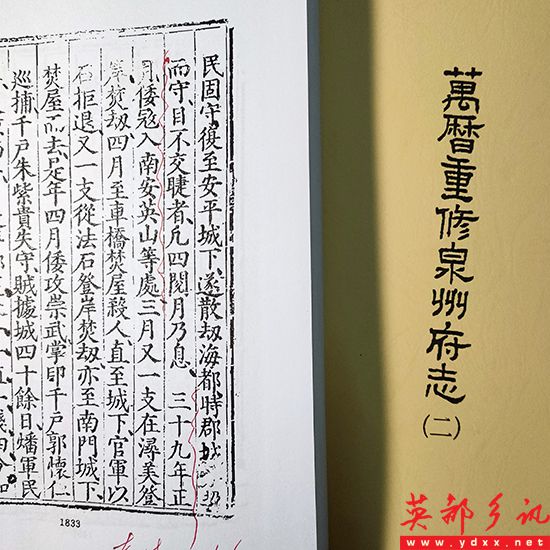 民固守復至安平城下遂散劫海都時郡城
而守目不交睫者凡四閱月乃息 三十九年正
月倭寇入南安英山等處三月又一支在潯美登
岸焚劫四月至車橋焚屋殺人直至城下官軍以
石拒退又一支從法石登岸焚劫亦至南門城下
焚屋而去是年四月倭攻崇武掌印千戶郭懷仁
巡捕千戶朱紫貴失守賊據城四十餘日燔軍民
1833
萬曆重修泉州府志
(二)
英都乡讯
www.ydxx.net